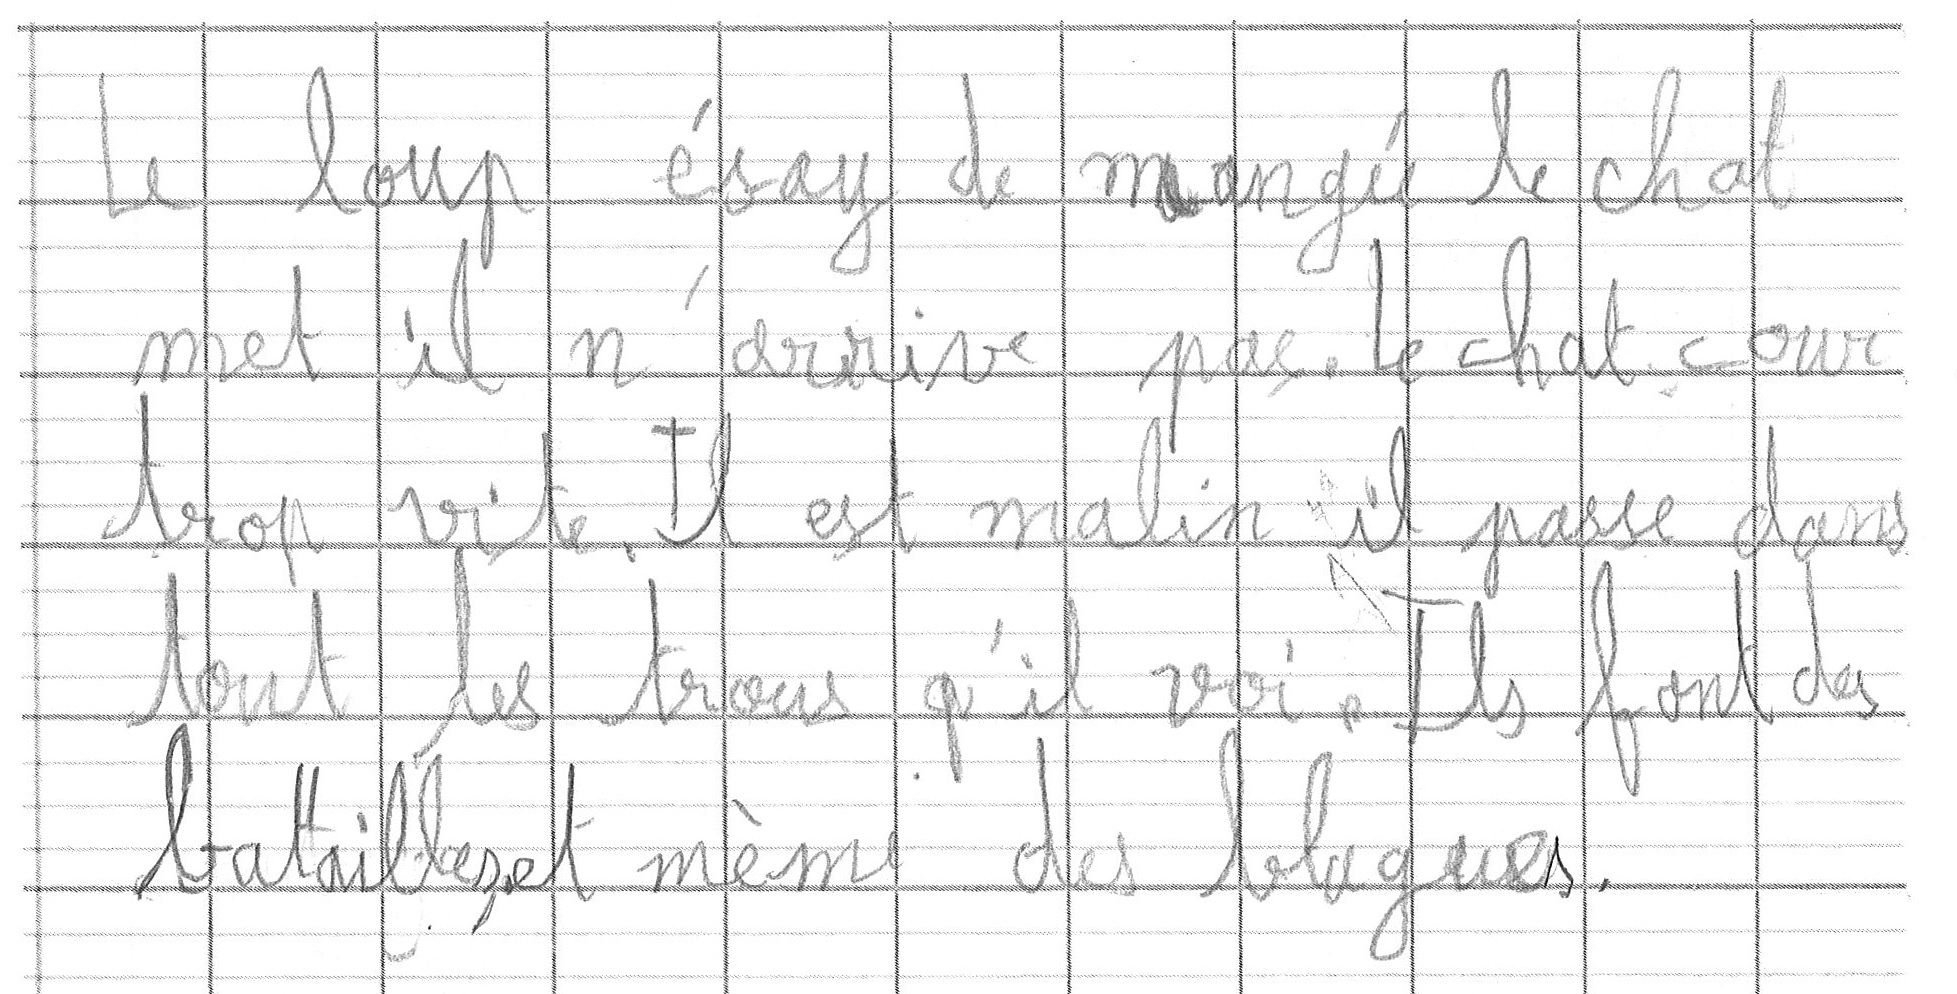 Le loup ésay de mangé le chat
met il n'arrive pas. Le chat cour
trop vite. Il est malin il passe dans
tout les trous q'il voi. Ils font des
batailles et mème des blagues.